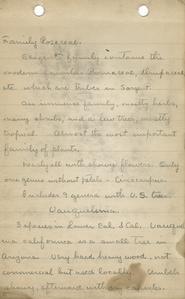 Family Rosaceae.
Sargent's family contains the
modern families Pomaceae, Drupaceae
etc. which are tribes in Sargent.
An immense family, mostly herbs,
many shrubs, and a few trees, mostly
tropical. Almost the most important
family of plants.
Nearly all with showy flowers. Only
one genus without petals - Cercocarpus.
Includes 9 genera with U.S. trees.
Vauquelinia.
3 species in Lower Cal. & Cal.
californica is a small tree in
Arizona. Very hard heavy wood, not
commercial but used locally.
showy, with capsules.